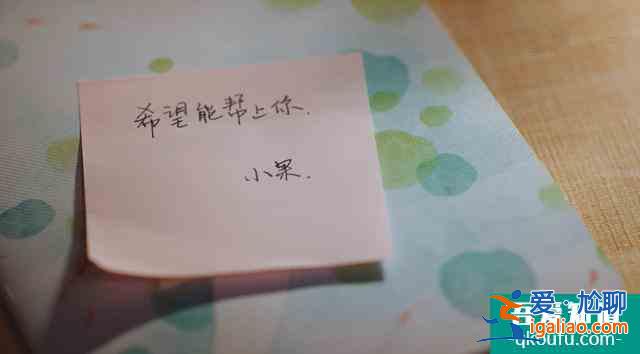 希望能帮上你.
小果.
爱·尬聊
igaliao.com
qkoufu.com